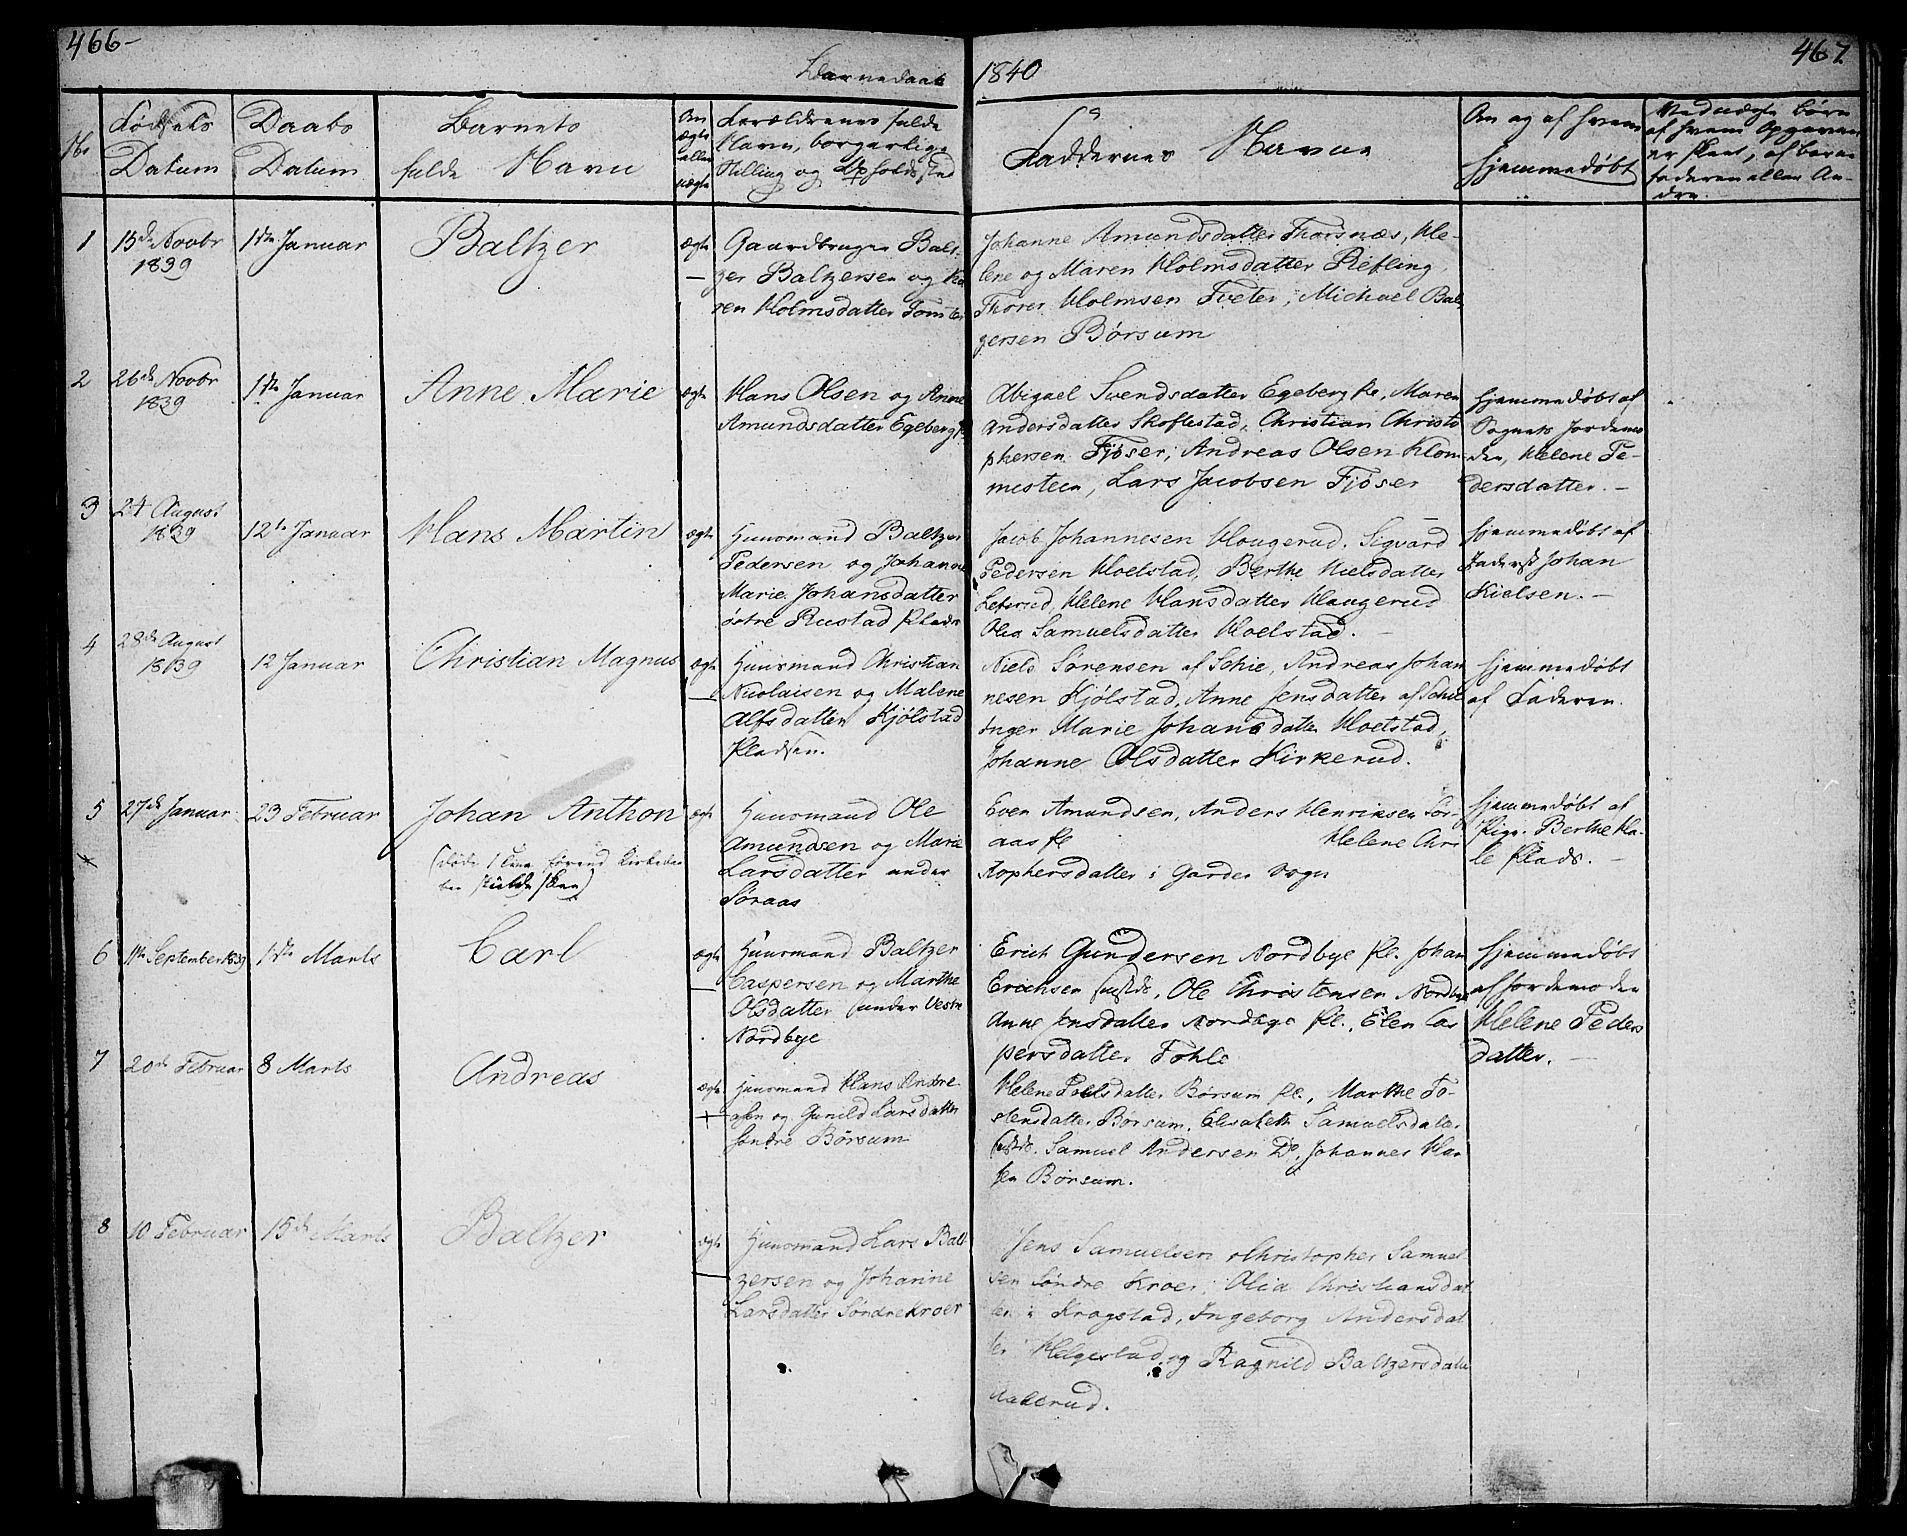 466-
Barnedaab
1840
467.
No
Fødsels
Datum
Daabs
Datum
Barnets
fulde Navn
Om
ægte
eller
uægte
Forældrenes fulde
Navn, borgerlige
Stilling og Opholdssted
Faddernes Navne
Om og af hvem
hjemmedøbt
Ved uægte børn
af hvem Opgaven
er skeet, af barne
faderen eller An-
dre.
1
15de Novbr
1839
1ste Januar
Baltzer
ægte
Gaardbruger Balt-
zer Baltzersen og Ka
ren Holmsdatter Tomter
Johanne Amundsdatter Thorsnæs, He-
lene og Maren Holmsdatter Riefling,
Thorer Holmsen Tveter, Michael Bal-
zersen Børsum
2
26de Novbr
1839
1ste Januar
Anne Marie
ægte
Hans Olsen og Anne
Amundsdatter Egeberg
Abigael Svendsdatter Egeberg Pl., Maren
Andersdatter Skoftestad, Christian Christo
phersen Fjøser, Andreas Olsen Klom-
mesteen, Lars Jacobsen Fjøser
hjemmedøbt af
Sognets Jordemo
der, Helene Pe-
dersdatter.-
3
24 August
1839
12te Januar
Hans Martin
ægte
Huusmand Baltzer
Pedersen og Johanne
Marie Johansdatter
østre Rustad Pladn
Jacob Johannesen Hougerud. Sigvard
Pedersen Hoelstad, Berthe Nielsdatter
Helene Hansdatter Hougerud
Olia Samuelsdatter Hoelstad.-
hjemmedøbt af
Johan
Kielsen.-
4
28de August
1839
12 Januar
Christian Magnus
ægte
Huusmand Christian
Nicolaisen og Malene
Alfsdatter Kjølstad
Pladsen.
Niels Sørensen af Schie, Andreas Johan
nesen Kjølstad, Anne Jensdatter af Schie
Inger Marie Johansdatter Hoelstad,
Johanne Olsdatter Kirkerud.
hjemmedøbt
af Faderen.
5
27de Januar
23 Februar
Johan Anthon
(døde 1 Uge førend Kirkedaa
ben skulde skee)
ægte
Huusmand Ole
Amundsen og Marie
Larsdatter under
Søraas
Even Amundsen, Anders Henriksen Sør-
aas Pl Helene Chri
stophersdatter i Garder Sogn
hjemmedøbt af
Pige Berthe Ha-
le Plads.-
6
11te September 1839
1ste Marts
Carl
ægte
Huusmand Baltzer
Caspersen og Marthe
Olsdatter under Vestre
Nordbye
Erich Gundersen Nordbye Pl. Johan
Erichsen Ole Christensen Nordbye
Anne Jensdatter Nordbye Pl., Elen Cas
persdatter Fohle
hjemmedøbt
af Jordemoder
Helene Peders
datter.-
7
20de Februar
8 Marts
Andreas
ægte
Huusmand Hans Andre-
asen og Gunild Larsdatter
søndre Børsum
Helene Poelsdatter Børsum Pl., Marthe To-
stensdatter Børsum, Elisabeth Samuelsdatter
Samuel Andersen Do, Johannes Han
sen Børsum.
8
10 Februar
15de Marts
Baltzer
ægte
Huusmand Lars Balt
zersen og Johanne
Larsdatter Søndre Kroer
Jens Samuelsen Christopher Samuel
sen Søndre Kroer, Olia Christiansdat
ter i Krogstad, Ingeborg Andersdat
ter Helgestad og Ragnild Baltzersdatter
Aaserud.